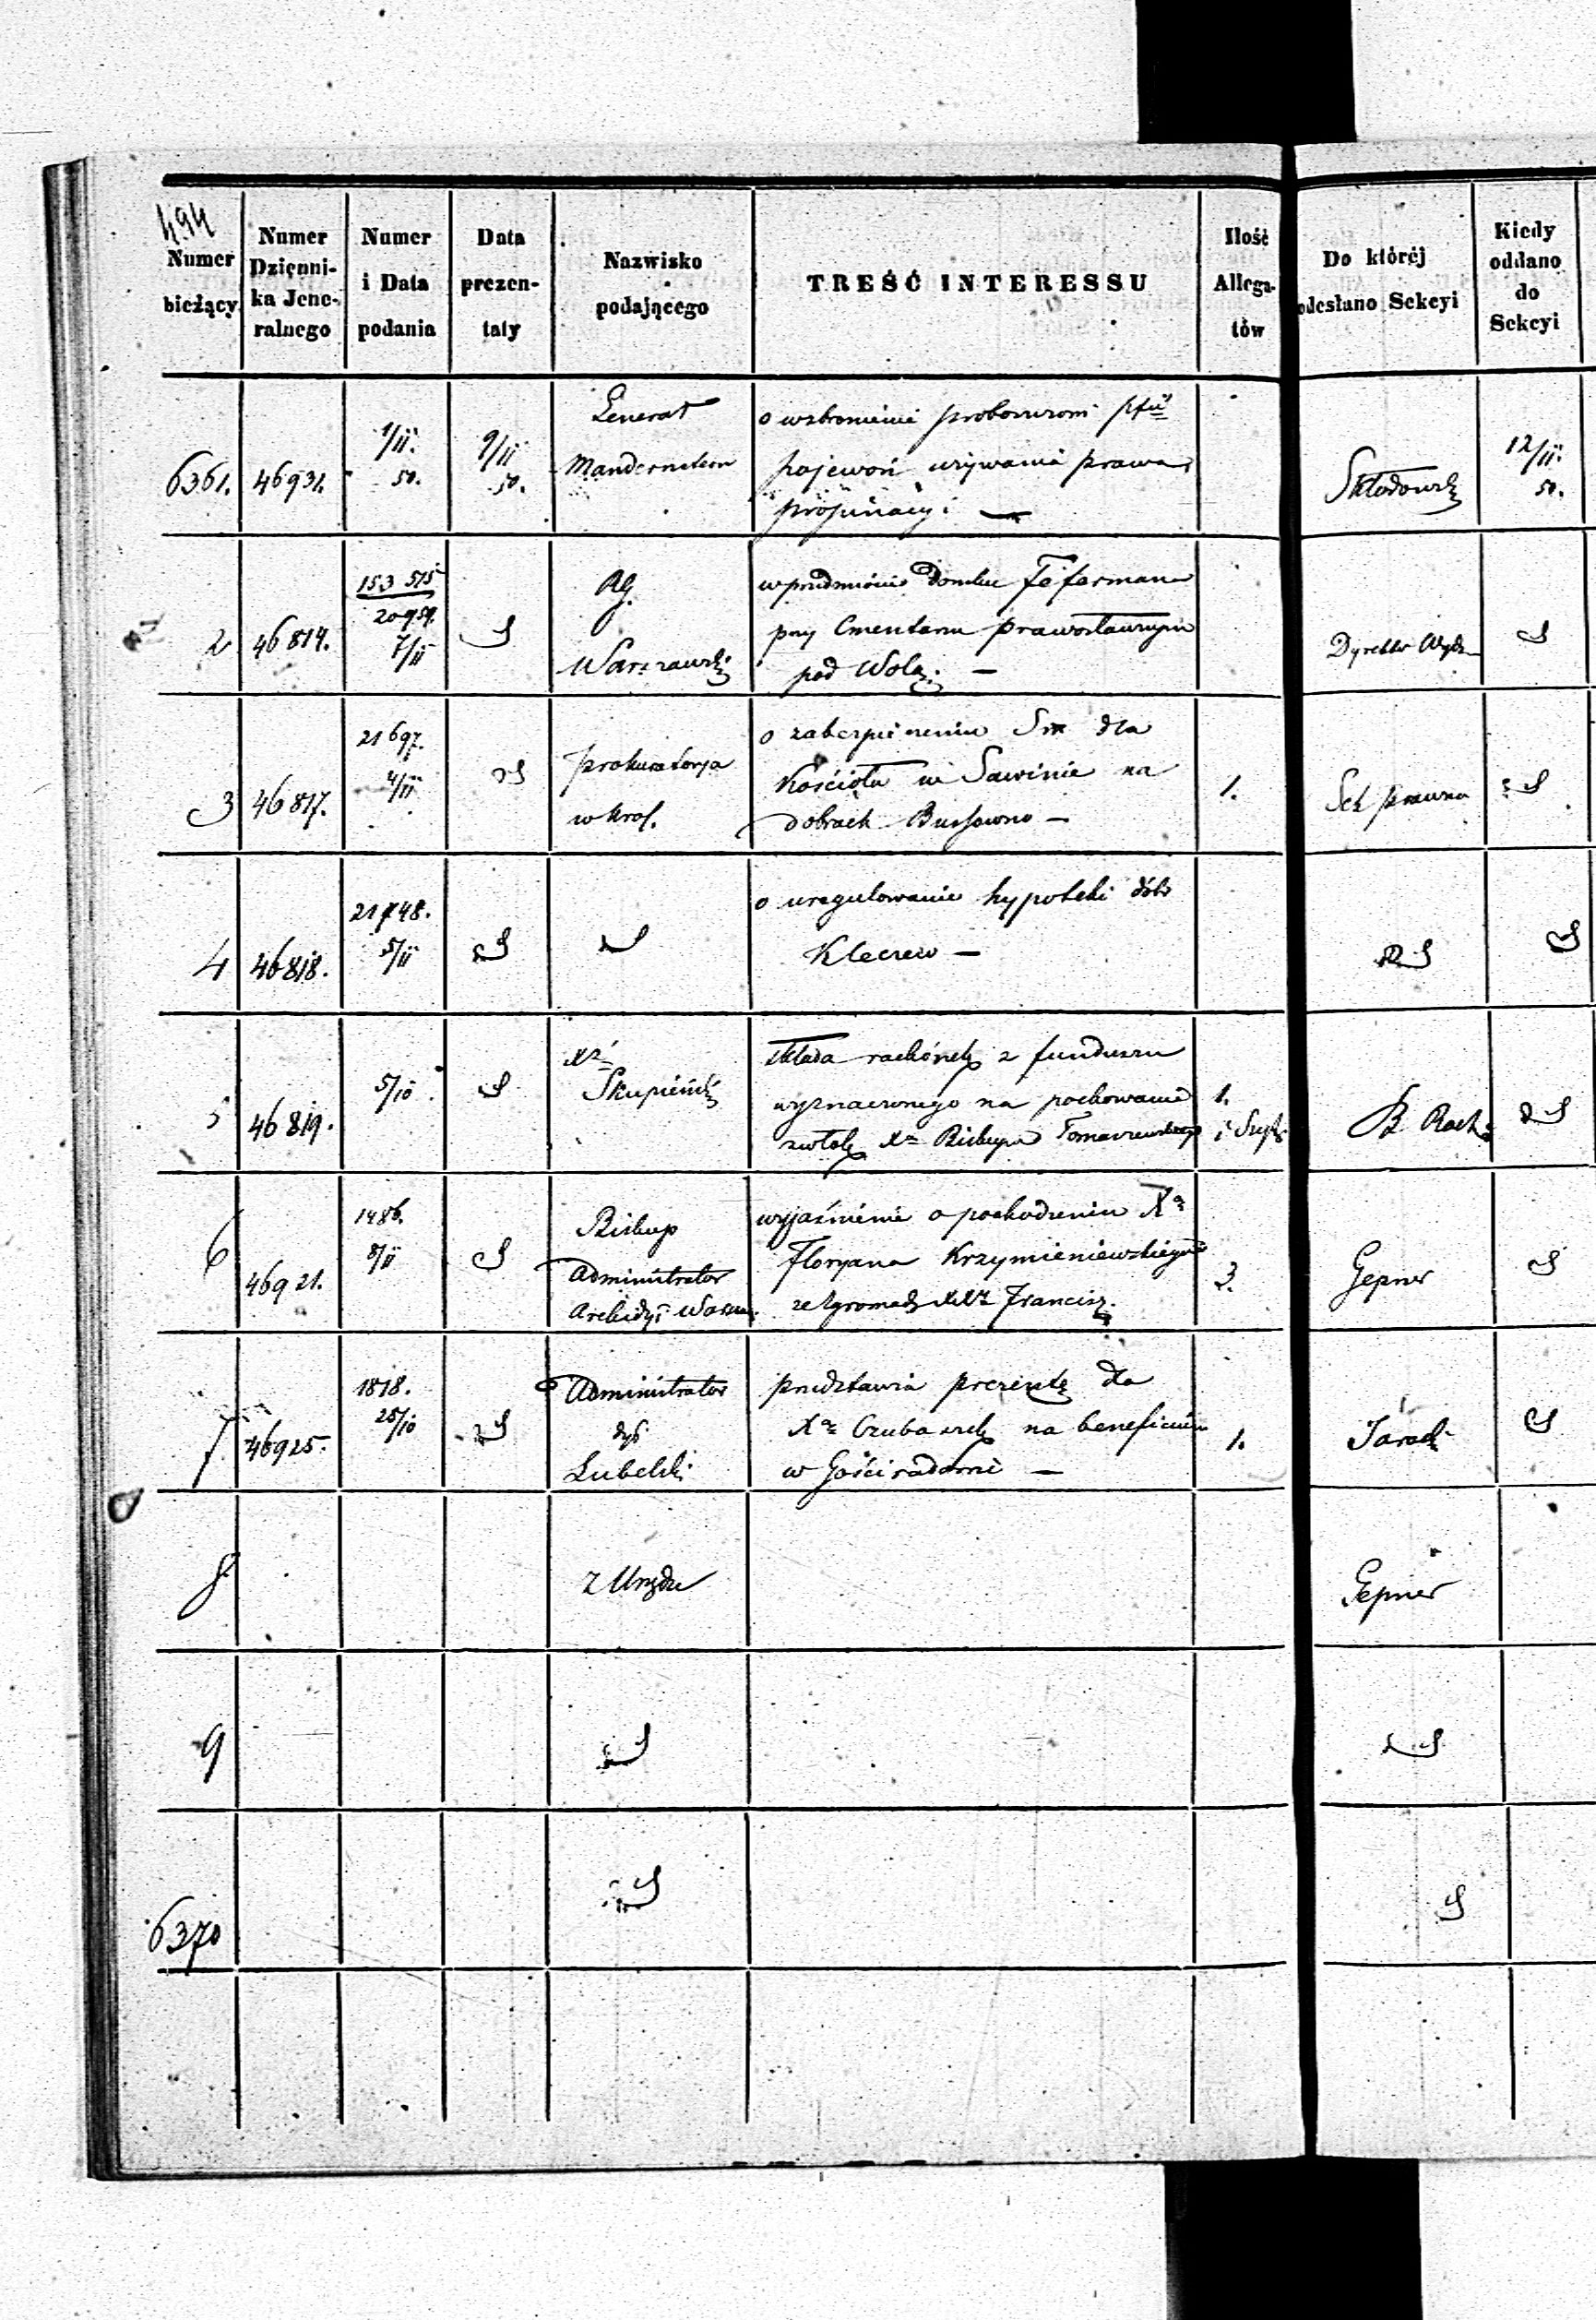 494
Numer bieżący
Numer Dzienni-ka Jene-ralnego
Numer i Data podania
Data prezen-taty
Nazwisko podającego
TREŚĆ INTERESSU
Ilość Allega-tów
Do któréj odesłano Sekcyi
Kiedy oddano do Sekcyi
6361. 46931. 1/11. 50. 9/11 50.
Generał
Mandernstern
o wzbronienie proboszczom
pojewoń używania prawa
propinacyi —
Skłodowski
12/11. 50.
2 46814.
153 515
20959.
7/11
RG.
Warszawski
w przedmiocie Domku Fefermana
przy Cmentarzu prawosławnym
pod Wolą. —
Dyrektor Wydz
3 46817.
21697.
4/11
Prokuratorya
w Król.
o zabezpieczeniu Sm dla
Kościoła w Sawinie na
dobrach Bussowno —
1.
Sek prawna
4 46818.
21748.
5/11
o uregulowanie hypoteki dóbr
Kleczew —
5 46819.
5/10
Xz
Skupieński
składa rachunek z funduszu
wyznaczonego na pochowanie
zwłok Xa Biskupa Tomaszewskiego
1.
B. Rach.
6 46921.
1486.
8/11
Biskup
Administrator
Archidy: Warsz.
wyjaśnienie o pochodzeniu Xa
Floryana Krzymieniewskiego
ze Zgromadz XXz Francisz.
3.
Gepner
7 46925.
1818.
25/10
Administrator
dyć
Lubelski
przedstawia prezentę dla
Xa Czubaszek na beneficium
w Gościradowie —
1.
8
z Urzędu
Gepner
9
6370